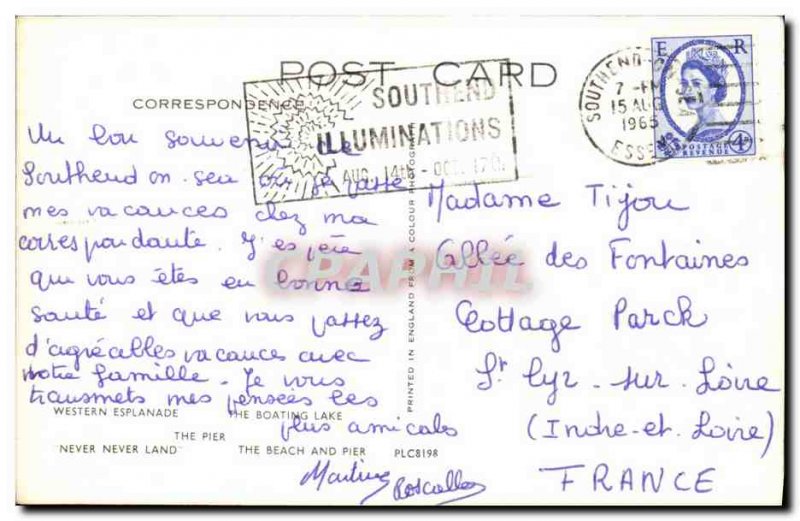 POST CARD
CORRESPONDENCE
SOUTHEND
ILLUMINATIONS
AUG. 14th - OCT. 17th
SOUTHEND-ON-SEA
7-PM
15 AUG
1965
ESSEX
E R
POSTAGE
REVENUE
4D
Un bon souvenir de
Southend on sea où je passe
mes vacances chez ma
correspondante. J'espère
que vous êtes en bonne
santé et que vous passez
d'agréables vacances avec
votre famille. Je vous
transmets mes pensées les
plus amicales
Martine
Madame Tijou
Allée des Fontaines
Cottage Parck
St Cyr-sur-Loire
(Indre-et-Loire)
FRANCE
CPAPHIL
PRINTED IN ENGLAND FROM A COLOUR PHOTOGRAPH
WESTERN ESPLANADE THE BOATING LAKE
THE PIER
"NEVER NEVER LAND" THE BEACH AND PIER PLC8198